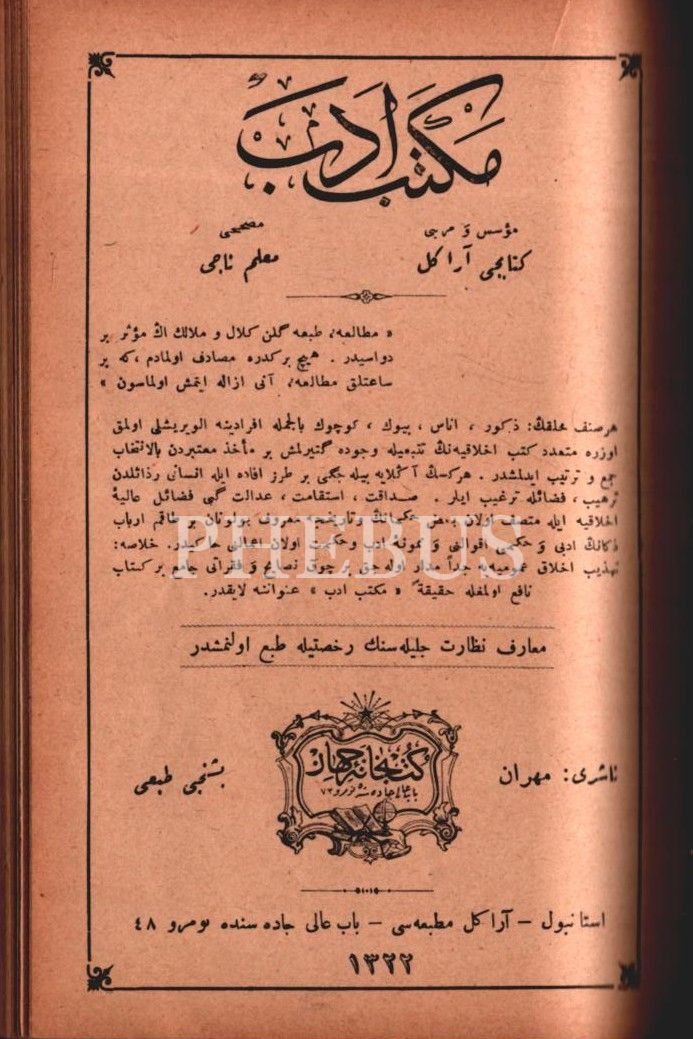 مكتب ادب
مؤسس و مربی
مصححی
كتابجی آراكل
معلم ناجی
« مطالعه، طبعه گلن كلال و ملالك اڭ مؤثر بر
دواسیدر . هیچ بر كدره مصادف اولمادم ، كه بر
ساعتلق مطالعه، آنی ازاله ایتمش اولماسون »
هر صنف خلقڭ: ذكور ، اناس ، بیوك ، كوچوك بالجمله افرادینه الویریشلی اولمق
اوزره متعدد كتب اخلاقیه‌نڭ تتبعیله وجوده گتیرلمش بر مأخذ معتبردن بالانتخاب
جمع و ترتیب ایدلمشدر . هركسڭ آڭلایه بیله جكی بر طرز افاده ایله انسانی رذائلدن
ترهیب ، فضائله ترغیب ایلر . صداقت ، استقامت ، عدالت گبی فضائل عالیهٔ
اخلاقیه ایله متصف اولان بعض حكمانڭ وتاریخجه معروف بولونان بر طاقم ارباب
ذكانڭ ادبی و حكمی اقوالنی و نمونهٔ ادب وحكمت اولان اعمالنی حاكیدر. خلاصه:
تهذیب اخلاق عمومیه‌یه جداً مدار اوله‌جق بر چوق نصایح و فقراتی جامع بر كتاب
نافع اولمغله حقیقةً « مكتب ادب » عنواننه لایقدر.
PHEBUS
معارف نظارت جلیله‌سنك رخصتیله طبع اولنمشدر
ناشری: مهران
كتبخانهٔ جهان
بشنجی طبعی
باب عالی جاده‌سنده نومرو ٧٢
استانبول — آراكل مطبعه‌سی — باب عالی جاده‌سنده نومرو ٤٨
١٣٢٢